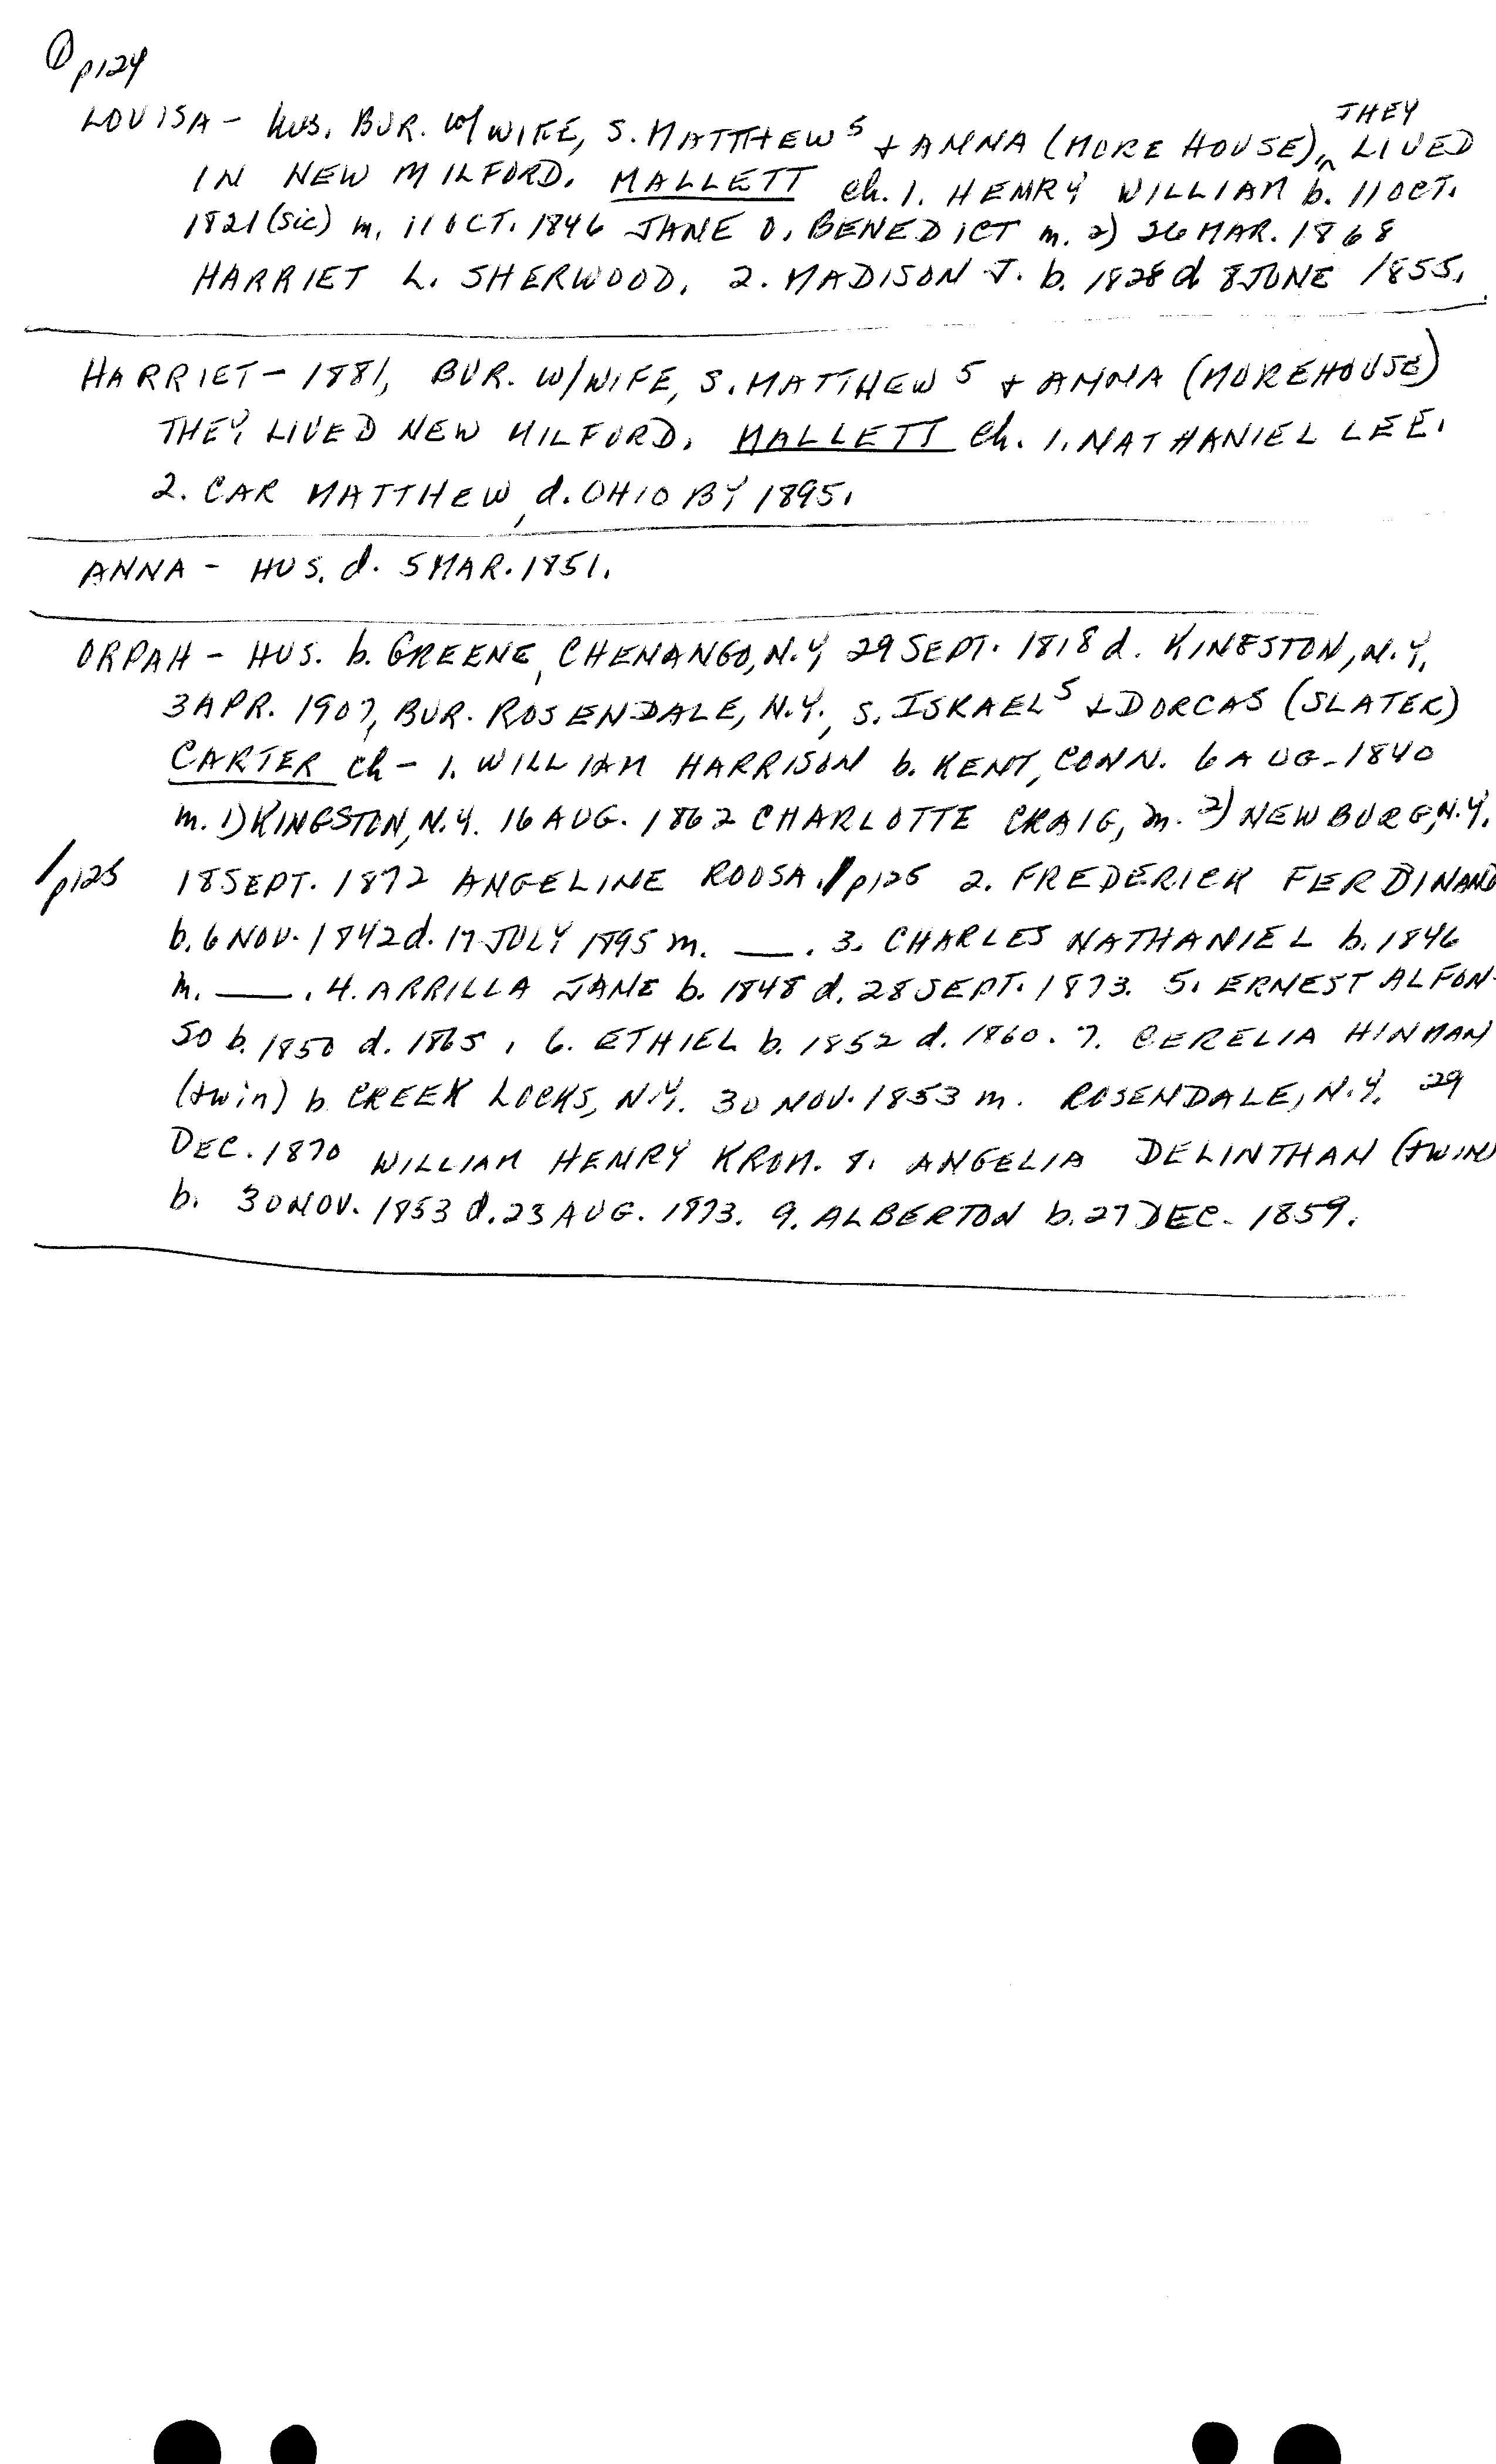 ① p124
THEY
LOUISA - hus. BUR. w/ WIFE, S. MATTHEW 5 + ANNA (MOREHOUSE), ^ LIVED
IN NEW MILFORD. MALLETT ch. 1. HENRY WILLIAM b. 11 OCT.
1821 (sic) m. 11 OCT. 1846 JANE O. BENEDICT m. 2) 26 MAR. 1868
HARRIET L. SHERWOOD. 2. MADISON J. b. 1828 d 8 JUNE 1855.
HARRIET - 1881, BUR. W/WIFE, S. MATTHEW 5 + ANNA (MOREHOUSE)
THEY LIVED NEW MILFORD. MALLETT ch. 1. NATHANIEL LEE.
2. CAR MATTHEW, d. OHIO BY 1895.
ANNA - HUS. d. 5 MAR. 1851.
ORPAH - HUS. b. GREENE, CHENANGO, N.Y, 29 SEPT. 1818 d. KINGSTON, N.Y.
3 APR. 1907, BUR. ROSENDALE, N.Y., S. ISRAEL 5 + DORCAS (SLATER)
CARTER ch - 1. WILLIAM HARRISON b. KENT, CONN. 6 AUG. 1840
m. 1) KINGSTON, N.Y. 16 AUG. 1862 CHARLOTTE CRAIG, m. 2) NEWBURG, N.Y.
/p125 18 SEPT. 1872 ANGELINE ROOSA. / p125 2. FREDERICK FERDINAND
b. 6 NOV. 1842 d. 17 JULY 1895 m. ___. 3. CHARLES NATHANIEL b. 1846
m. ___. 4. ARRILLA JANE b. 1848 d. 28 SEPT. 1873. 5. ERNEST ALFON-
SO b. 1850 d. 1865. 6. ETHIEL b. 1852 d. 1860. 7. CERELIA HINMAN
(twin) b CREEK LOCKS, N.Y. 30 NOV. 1853 m. ROSENDALE, N.Y. 29
DEC. 1870 WILLIAM HENRY KROM. 8. ANGELIA DELINTHAN (TWIN)
b. 30 NOV. 1853 d. 23 AUG. 1873. 9. ALBERTON b. 27 DEC. 1859.